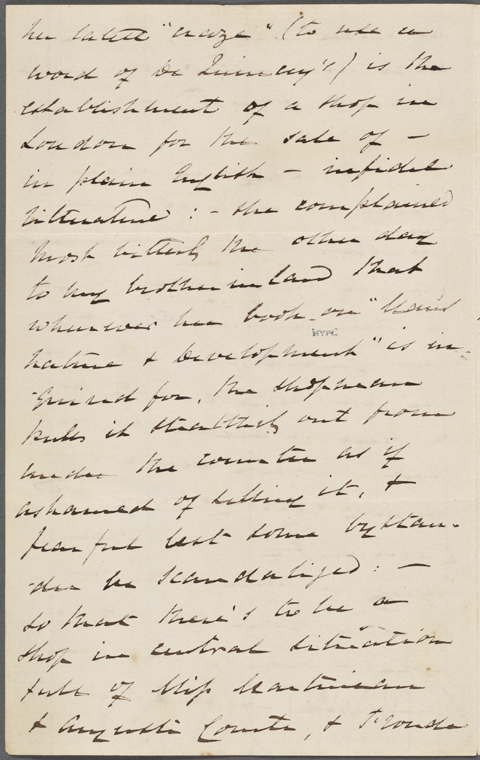 her latest "craze" (to use a
word of De Quincey's) is the
establishment of a shop in
London for the sale of —
in plain English — infidel
literature: — she complained
most bitterly the other day
to my brother in law that
whenever her book on "Man's
NYPL
Nature & Development" is in-
-quired for, the shopman
pulls it stealthily out from
under the counter as if
ashamed of selling it, &
fearful lest some bystan-
-der be scandalized: —
so that there's to be a
shop in central situation
full of Miss Martineau
& Auguste Comte, & Froude